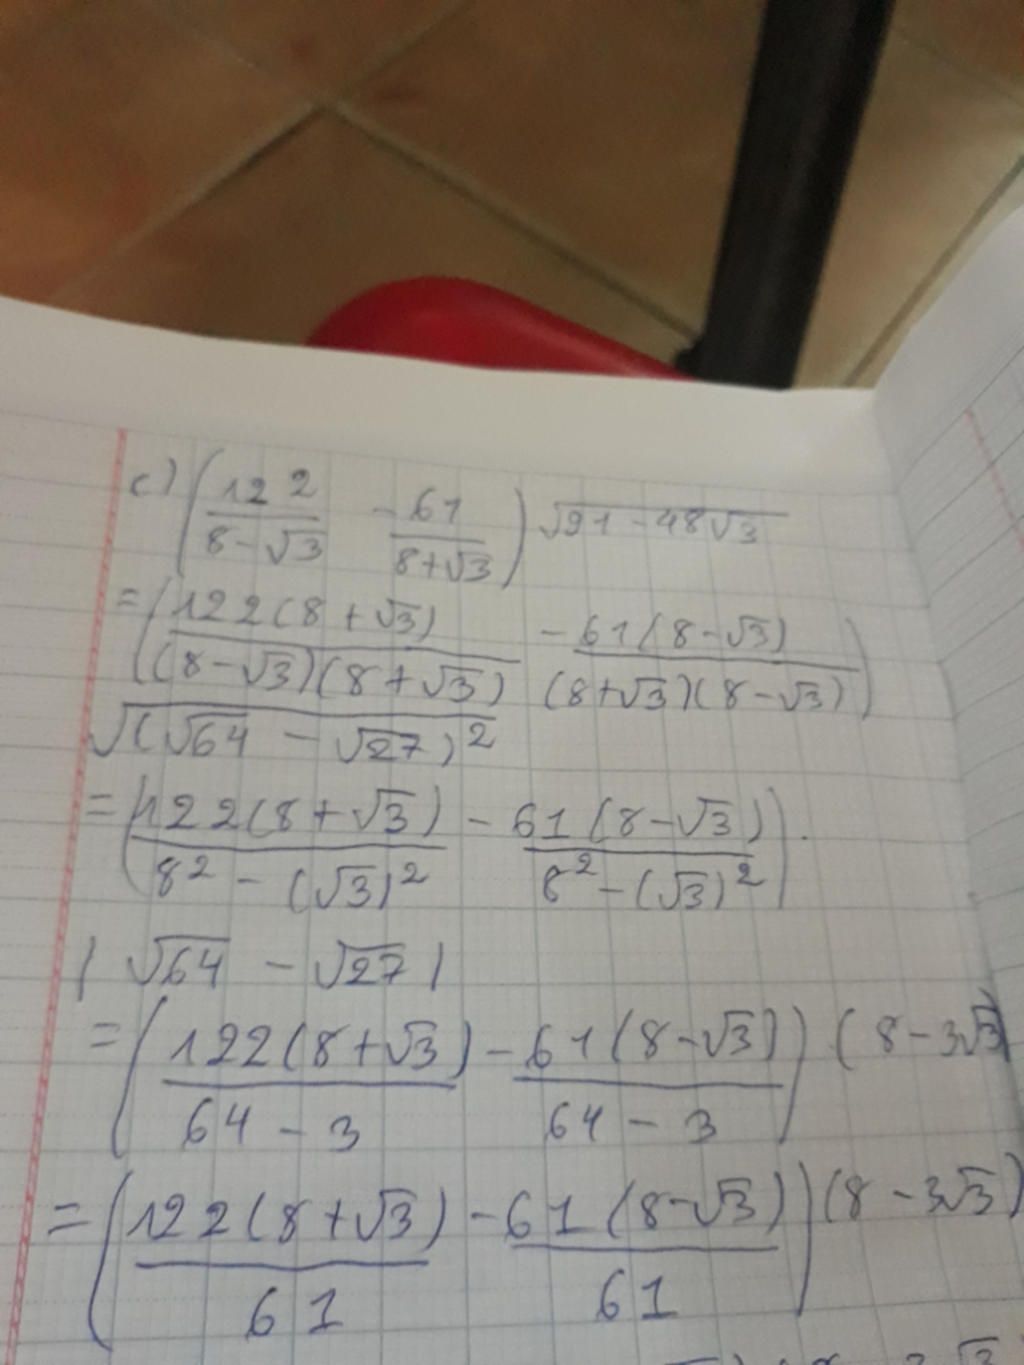 c) (122/(8-√3) - 61/(8+√3)) √(91-48√3)
= (122(8+√3)/((8-√3)(8+√3)) - 61(8-√3)/((8+√3)(8-√3)))
√((√64 - √27)²)
= (122(8+√3)/(8² - (√3)²) - 61(8-√3)/(8² - (√3)²)).
|√64 - √27|
= (122(8+√3)/(64-3) - 61(8-√3)/(64-3)) (8-3√3)
= (122(8+√3)/61 - 61(8-√3)/61) (8-3√3)